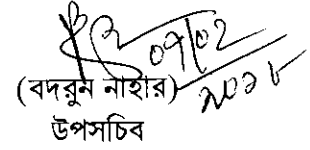 ০৭/০২
২০১৮
(বদরুন নাহার)
উপসচিব